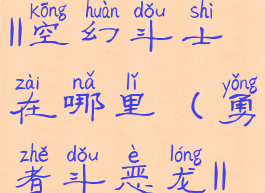 kōng huàn dǒu shì
||空幻斗士
zài nǎ lǐ yǒng
在哪里（勇
zhě dǒu è lóng
者斗恶龙||